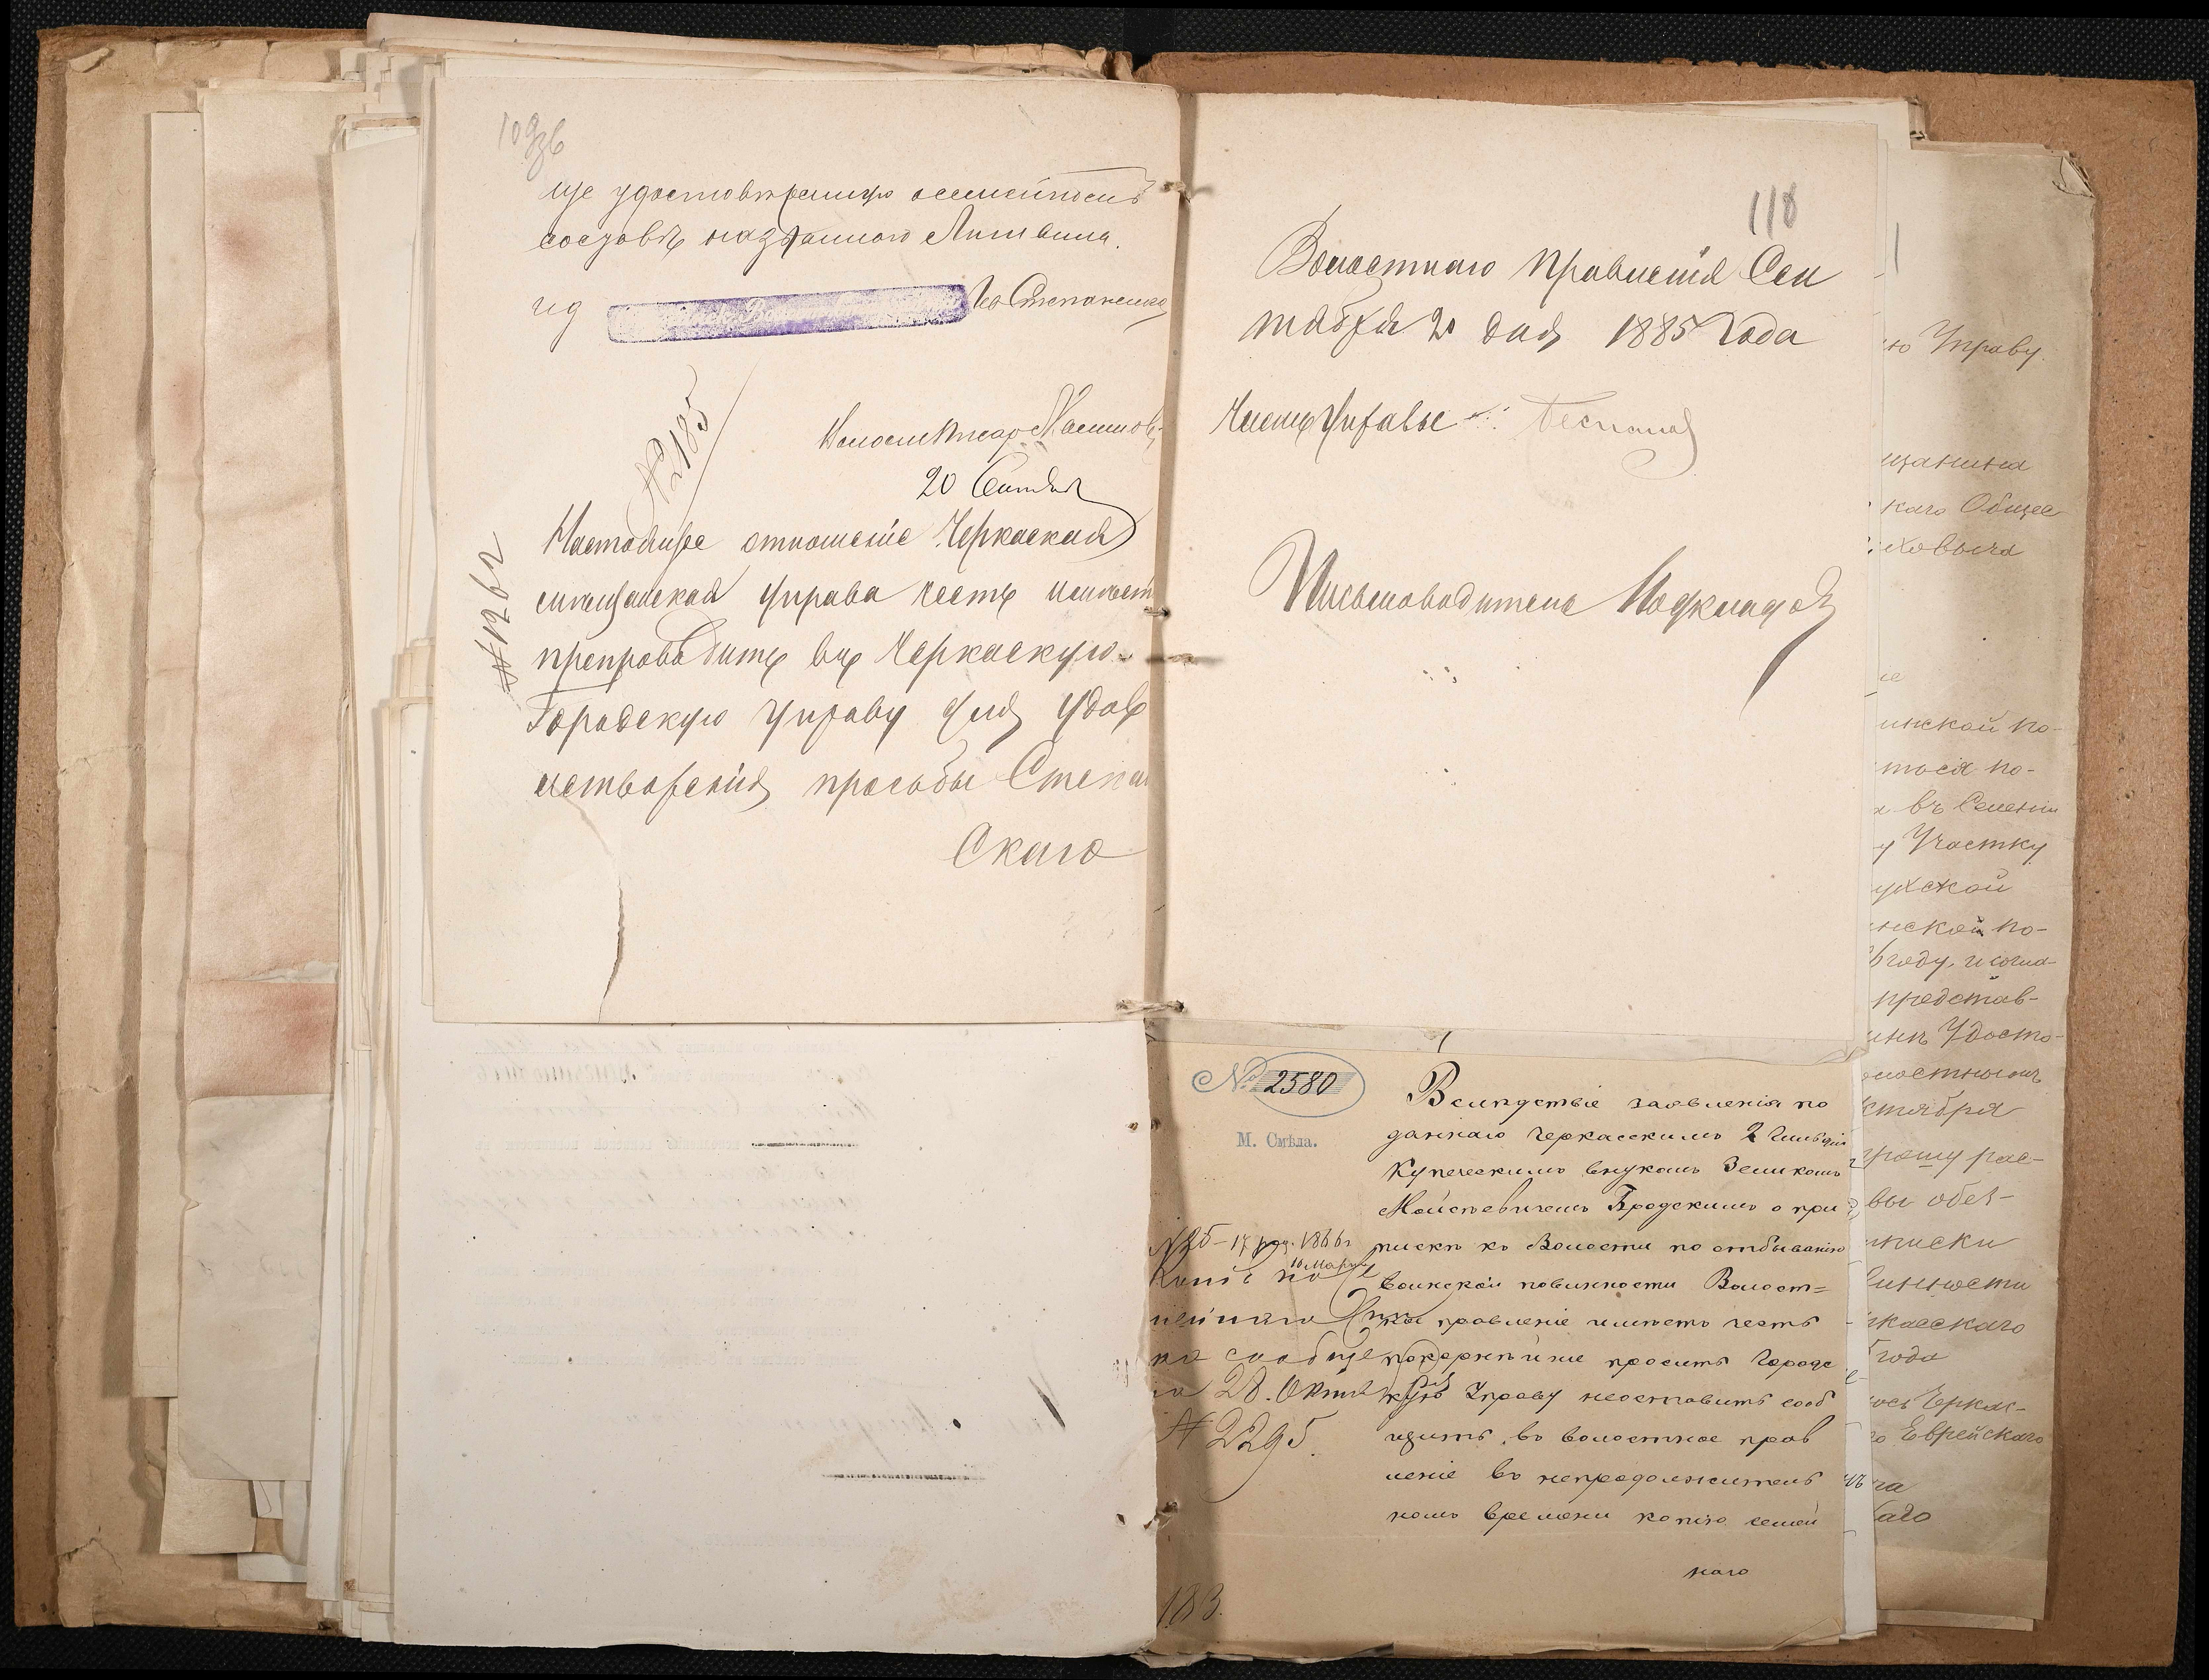 109зв
ще удостовѣреніцю о семейномъ
составѣ названнаго Литвина.
ид
Ив Степаненко
№ 2185
Помощ Писар
20 Сентября
№ 1261
Настоящее отношеніе Черкаская
мѣщанская управа честь имѣетъ
препроводить въ Черкаскую
Городскую Управу для удов
летворенія просьбы Степан
Скаго
110
Волостнаго Правленія Сен
тября 20 дня 1885 года
Членъ Управы
Письмоводитель
№ 2580
М. Смѣла.
Вслѣдствіе заявленія по
даннаго Черкасскимъ 2 гильдіи
Купеческимъ внукомъ Зеликомъ
Мойсѣевичемъ Бродскимъ о при
пискѣ къ Волости по отбыванію
воинской повинности Волост=
ное правленіе имѣетъ честь
покорнѣйше проситъ Городс
кую Управу неоставить сооб
щить въ волостное прав
леніе въ непродолжитель
номъ времени копію семей
наго
1866г
16 Марта
Копія по
на сообще
28. Октяб
№ 2295.
183.
ю Управу.
щанина
каго Общес
инской по-
тося по-
въ Селеніи
у Участку
нской по-
году, и согла-
представ-
Удосто-
олостнымъ
ктября
прошу рас-
вы обез-
писки
винности
касскаго
года
ось Черкас-
о Еврейскаго